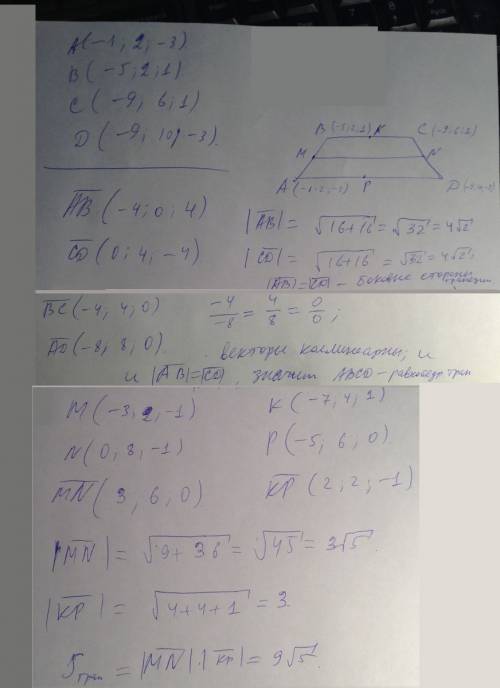 A(-1; 2; -3)
B(-5; 2; 1)
C(-9; 6; 1)
D(-9; 10; -3).
AB(-4; 0; 4)
CD(0; 4; -4)
B(-5;2;1) K C(-9;6;1)
M N
A(-1;2;-3) P D
|AB| = √16+16 = √32 = 4√2
|CD| = √16+16 = √32 = 4√2;
|AB|=|CD| - боковые стороны трапеции
BC(-4; 4; 0) -4/-8 = 4/8 = 0/0;
AD(-8; 8; 0). векторы коллинеарны; и
и |AB|=|CD|, значит ABCD - равнобедр трап
M(-3; 2; -1) K(-7; 4; 1)
N(0; 8; -1) P(-5; 6; 0)
MN(3; 6; 0) KP(2; 2; -1)
|MN| = √9+36 = √45 = 3√5.
|KP| = √4+4+1 = 3.
Sтрап = |MN|·|KP| = 9√5.